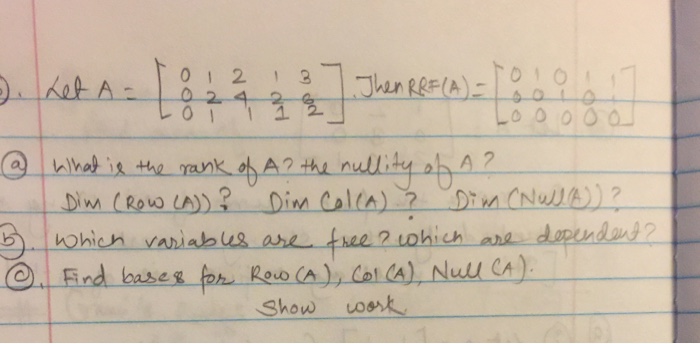 Let A = [ 0 1 2 1 3 ]. Then RRF(A) = [ 0 1 0 1 1 ]
0 2 4 2 6 0 0 1 0 1
0 1 1 1 2 0 0 0 0 0
ⓐ What is the rank of A? the nullity of A?
Dim (Row (A))? Dim Col(A)? Dim (Null(A))?
ⓑ. Which variables are free? which are dependent?
ⓒ. Find bases for Row (A), Col (A), Null (A).
Show work